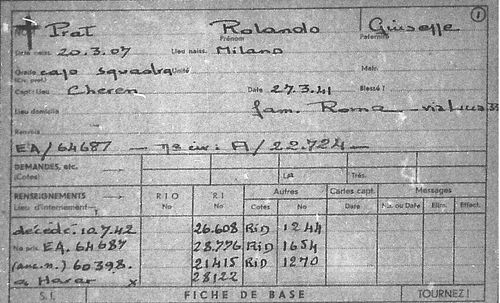 1
Prat Rolando Giuseppe
Prénom Paternité
Date naiss. 20.3.07 Lieu naiss. Milano
Grade capo squadra Unité Matr.
Capt: Lieu Cheren Date 27.3.41 Blessé?
Lieu domicile fam. Roma – via
Renvois
EA/64687 — A/22.724 —
DEMANDES, etc.
(Cotes) Trés.
RENSEIGNEMENTS RIO RI Autres Cartes capt. Messages
Lieu d'internement No No Cotes No Date No. ou Date Elim. Effect.
décéde: 10.7.42 26.608 RiD 1244
No pris. EA. 64687 28.776 RiD 1654
(anc. n.) 60398. 21415 RiD 1270
a Harar x 28122
S.I. FICHE DE BASE TOURNEZ!